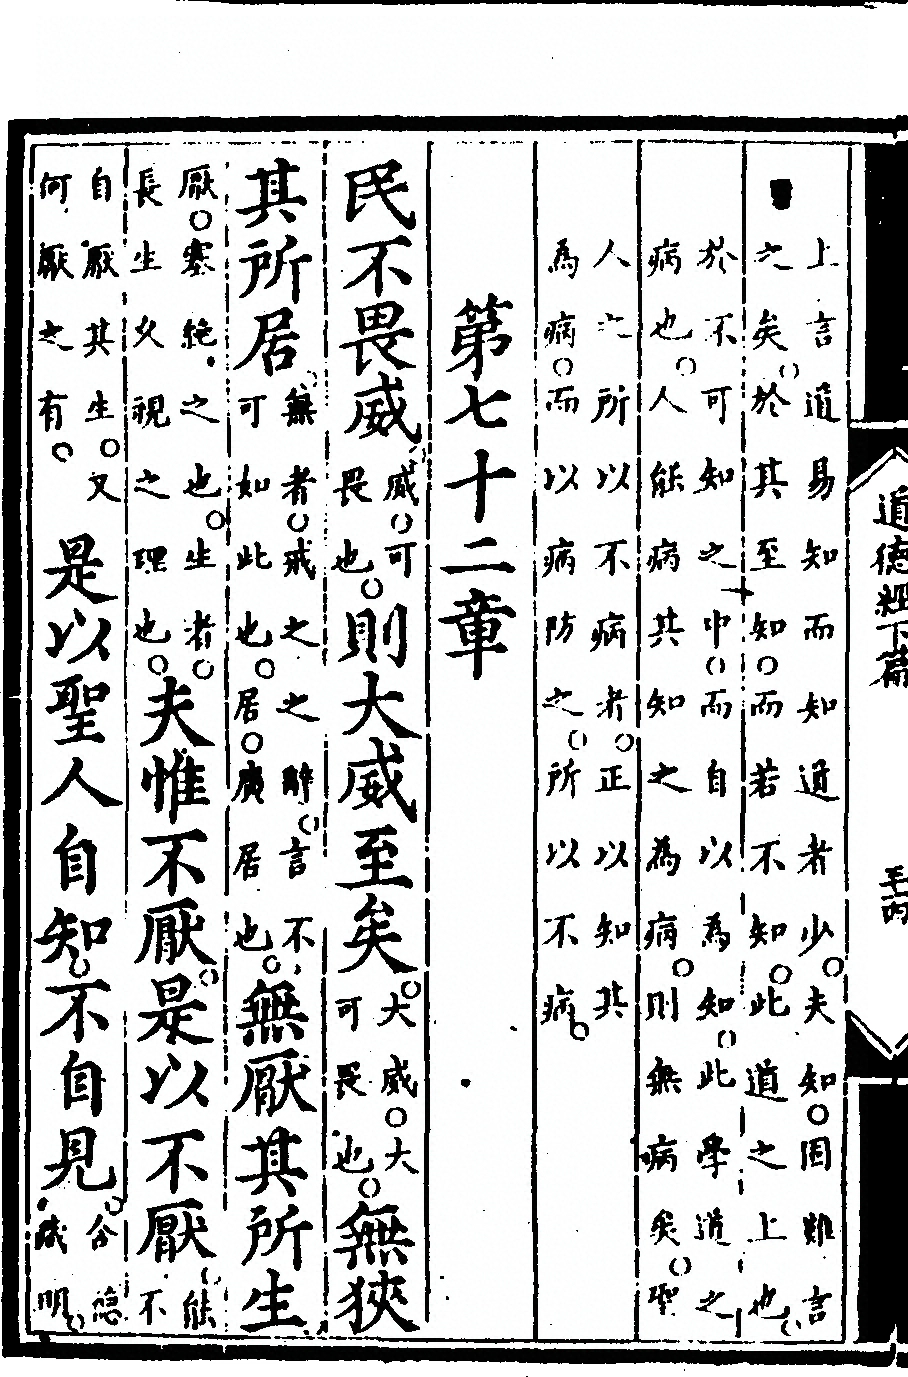 上言道易知而知道者少。夫知。固難言
之矣。於其至知。而若不知。此道之上也。
於不可知之中。而自以為知。此學道之
病也。人能病其知之為病。則無病矣。聖
人之所以不病者。正以知其
為病。而以病防之。所以不病。
第七十二章
民不畏威。威。可畏也。則大威至矣。大威。大可畏也。無狹
其所居。無者。戒之之辭。言不可如此也。居。廣居也。無厭其所生
厭。塞絕之也。生者。長生久視之理也。夫惟不厭。是以不厭。能不
自厭其生。又何厭之有。是以聖人自知。不自見。含隱藏明。
道德經下篇